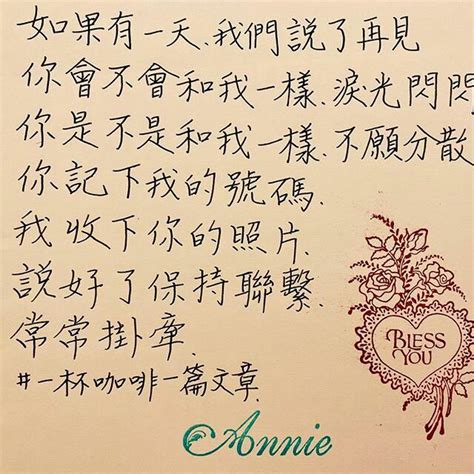 如果有一天、我們說了再見
你會不會和我一樣、淚光閃閃
你是不是和我一樣、不願分散
你記下我的號碼、
我收下你的照片、
說好了保持聯繫、
常常掛牽、
#一杯咖啡一篇文章、
BLESS
YOU
Annie